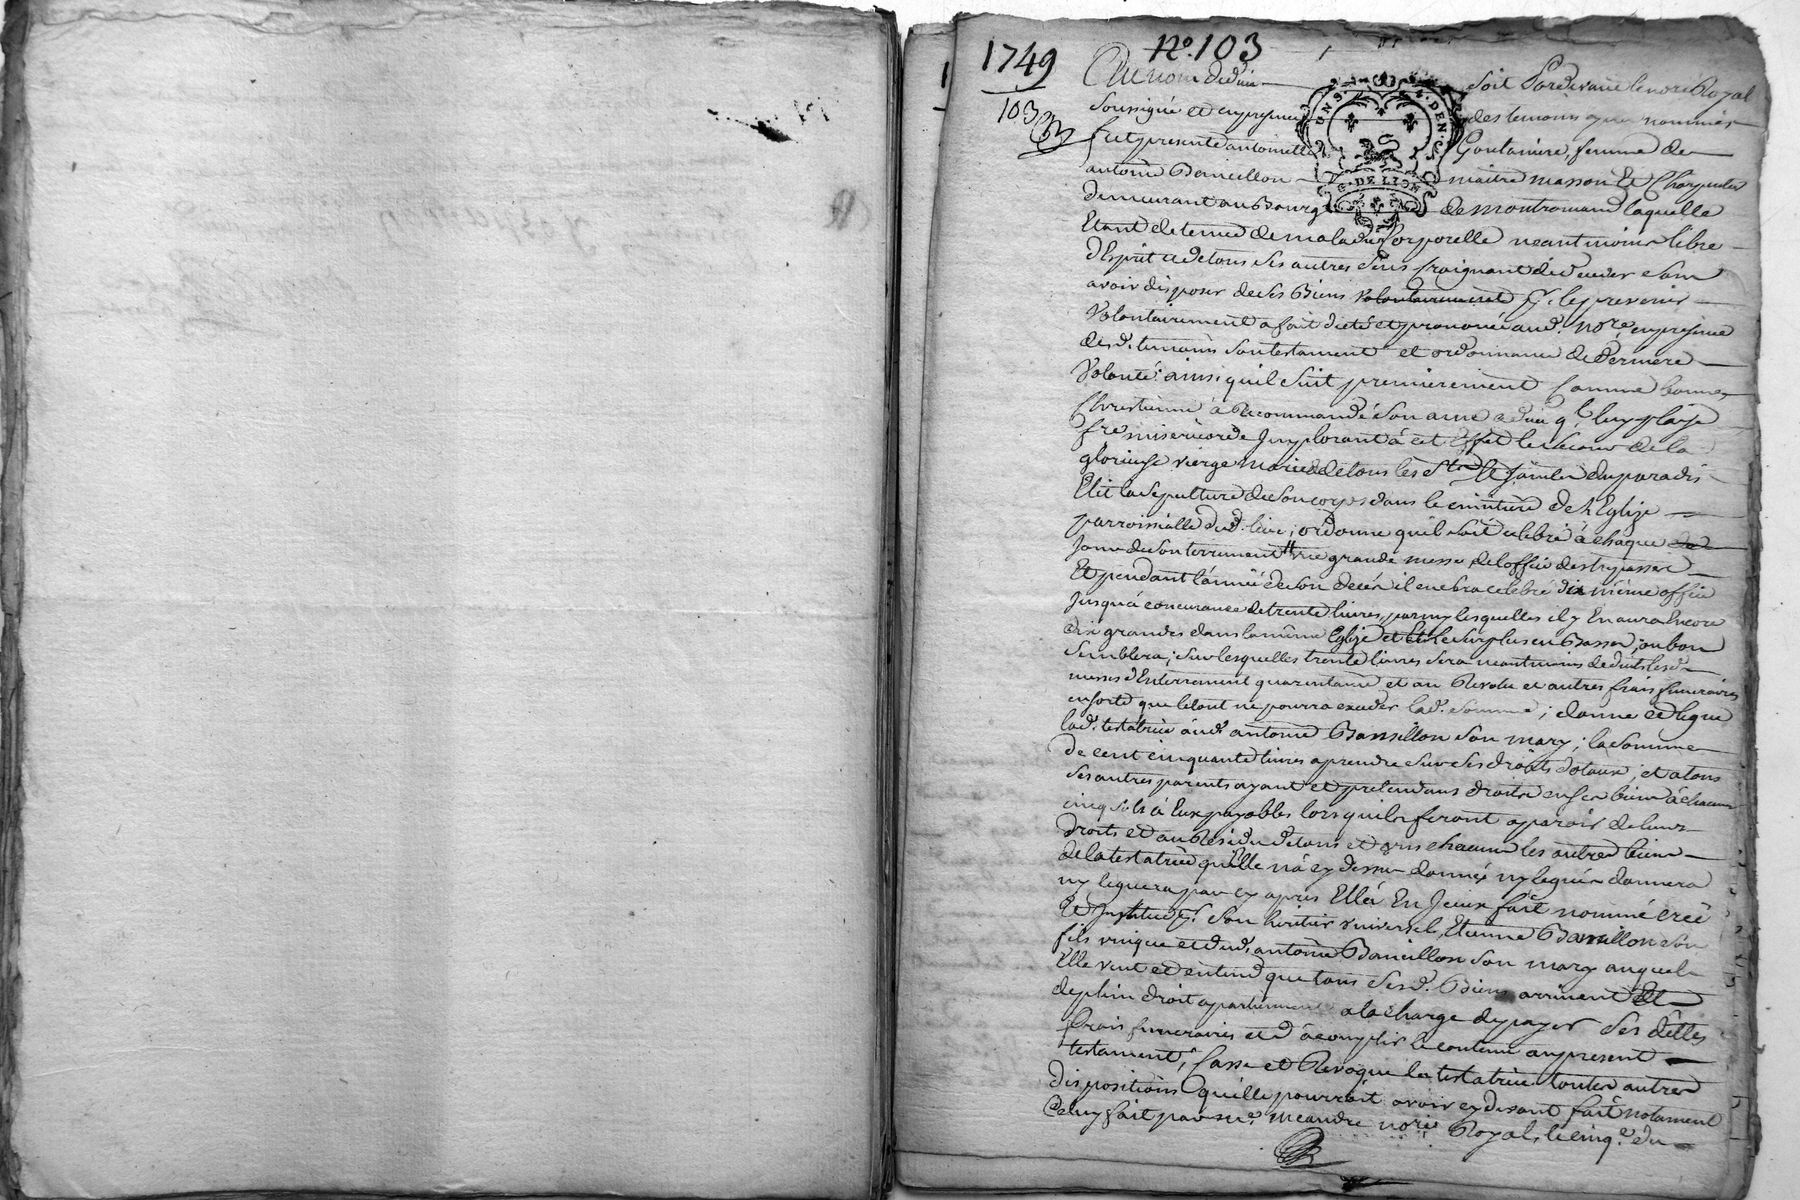 1749
N.º 103
103
Au nom de dieu soit Pardevant le no.re Royal
soussigné et en presence des temoins apres nommés
fut presente antoinette Goutaniere, femme de
antoine Baneillon maitre masson Et Charpentier
demeurant au Bourg de montromand laquelle
Etant detenue de maladie Corporelle neantmoins libre
d'Esprit et de tous ses autres sens Craignant de deceder sans
avoir disposer de ses Biens volontairement p.r le prevenir
Volontairement a fait dicté et prononcé aud. no.re en presence
desd. temoins son testament et ordonnance de dernière
Volonté ainsi quil suit premierement Comme bonne
Chrestienne à Recommandé son ame a dieu q.l luy plaise
f.re misericorde Implorant à cet Effet le secour de la
glorieuse vierge marie et de tous les S.ts Et saintes du paradis
Elit la sepulture de son corps dans le cimitiere de L'Eglize
parroissialle dud. lieu; ordonne quil soit celebré à chaque
Jour de son terrement une grande messe de l'office des trepassés
Et pendant l'année de son decés il en sera celebré dix même office
Jusqu'a concurance de trente livres, parmy lesquelles il y En aura Encore
dix grandes dans la même Eglize et le surplus en Basses, ou bon
semblera; sur lesquelles trente livres sera neantmoins deduit lesd.
messes d'Enterrement quarantaine et au Revolu et autres frais funeraires
ensorte que le tout ne pourra exceder lad. somme; donne et legue
lad. testatrice aud. antoine Banneillon son mary; la somme
de cent cinquante livres a prendre sur ses droits dotaux; et a tous
ses autres parents ayant et pretendans droits en ses biens à chacun
cinq sols à Eux payables lors quils feront aparoir de leurs
droits et au Residu de tous et uns chacuns les autres biens
de la testatrice qu'Elle n'a cy dessus donnés ny legués donnera
ny leguera par cy apres Elle à En Jceux fait nommé créé
Et Institué p.r son heritier universel, Etienne Banneillon son
fils unique et dud. antoine Banneillon son mary auquel
Elle veut et entend que tous sesd. Biens arrivent Et
de plein droit apartiennent a la charge de payer ses dettes
frais funeraires et d'acomplir le contenu au present
testament; Casse et Revoque la testatrice toutes autres
dispositions qu'elle pourroit avoir cy devant fait notament
Celuy fait par m.e meandre no.re Royal, le cinq.e du
UN S. 4. DEN.
G. DE LION